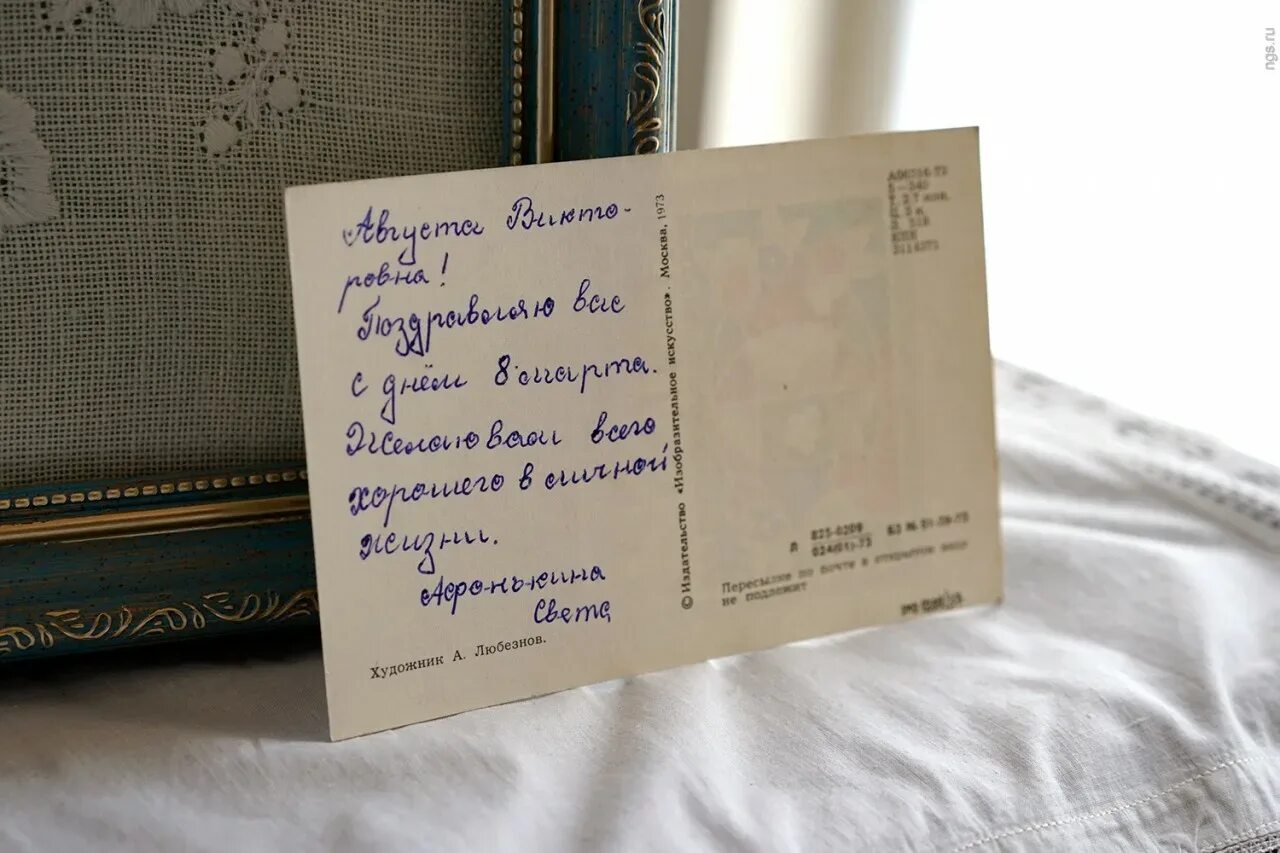 Августа Викто-
ровна!
Поздравляю вас
с днём 8 марта.
Желаю вам всего
хорошего в личной
жизни.
Афонькина
Света
Художник А. Любезнов.
© Издательство «Изобразительное искусство». Москва, 1973
5—340
Л 825-0209
024(01)-73
Пересылке по почте в открытом виде
не подлежит
ngs.ru